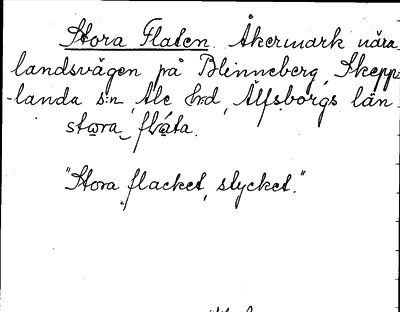 Stora Flaten. Åkermark nära
landsvägen på Blinneberg, Skepp-
landa s:n, Ale hd, Älfsborgs län
stωra flωta.
"Stora flacket, stycket."